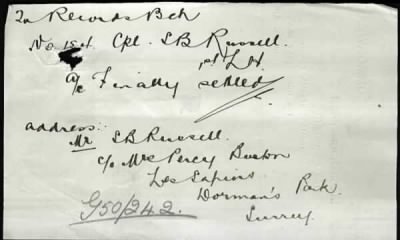 To Records Bch
No. 154. Cpl. S B Russell.
1st L H
a/c Finally settled
address:
Mr S B Russell.
c/o Mrs Percy Buxton
Les Sapins
Dorman's Park.
Surrey
G50/242.